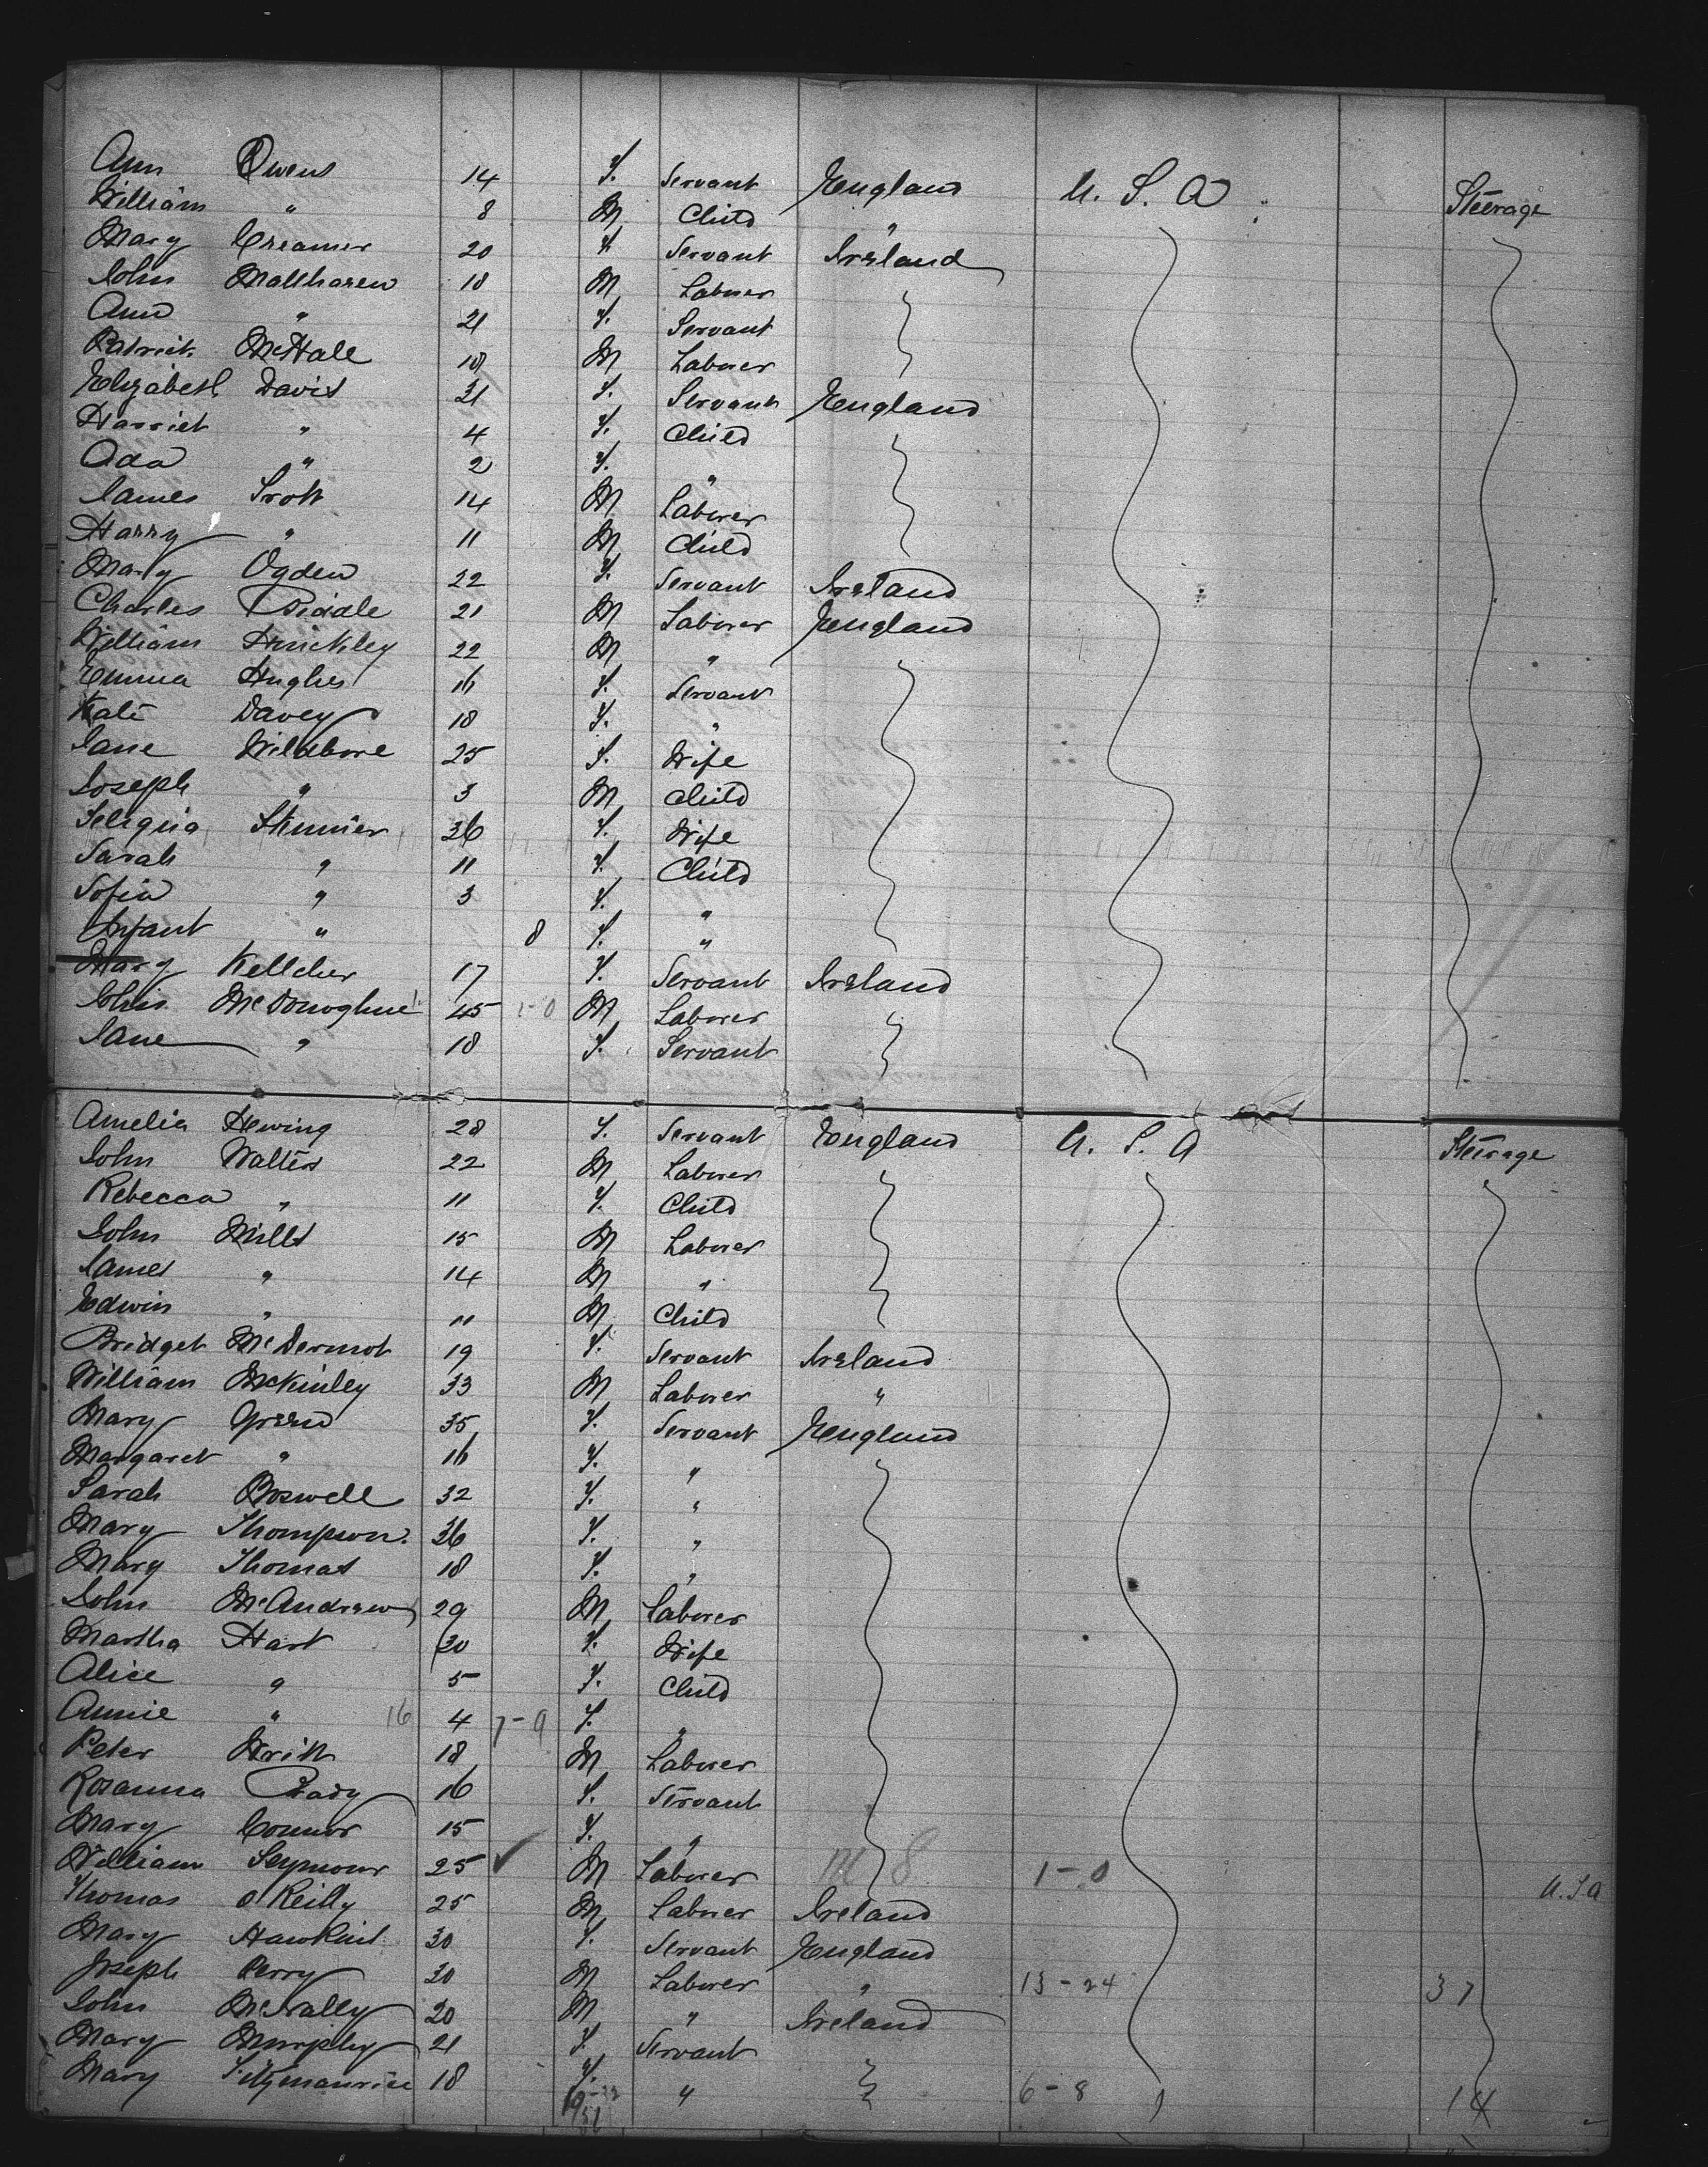 Ann Owens 14 F. Servant England U. S. A Steerage
William " 8 M Child "
Mary Creamer 20 F Servant Ireland
John 18 M Laborer
Ann " 21 F. Servant
Patrick McHale 18 M Laborer
Elizabeth Davis 31 F. Servant England
Harriet " 4 F. Child
Ada " 2 F. "
James Trott 14 M Laborer
Harry " 11 M Child
Mary Ogden 22 F. Servant Ireland
Charles 21 M Laborer England
William Hinckley 22 M "
Emma Hughes 16 F. Servant
Kate Davey 18 F. "
Jane Wildbore 25 F. Wife
Joseph " 3 M Child
Skinner 36 F. Wife
Sarah " 11 F. Child
Sofia " 3 F. "
Infant " 8 F. "
Mary Kellcher 17 F. Servant Ireland
John McDonoghue 45 1-0 M Laborer
Jane " 18 F. Servant
Amelia Hewing 28 F. Servant England U. S. A Steerage
John Walters 22 M Laborer
Rebecca " 11 F. Child
John Mills 15 M Laborer
James " 14 M "
Edwin " 11 M Child
Bridget McDermot 19 F. Servant Ireland
William McKinley 33 M Laborer "
Mary Green 35 F. Servant England
Margaret " 16 F. "
Sarah Boswell 32 F. "
Mary Thompson. 36 F. "
Mary Thomas 18 F. "
John McAndrew 29 M Laborer
Martha Hart 30 F. Wife
Alice " 5 F. Child
Annie " 16 4 7-9 F. "
Peter 18 M Laborer
Rosanna Brady 16 F. Servant
Mary Connor 15 F. "
William Seymour 25 ✓ M Laborer M 8 1-0
Thomas O Reilly 25 M Laborer Ireland U.S.a
Mary Hawkins 30 F. Servant England
Joseph Perry 30 M Laborer " 13-24 37
John McNally 20 M " Ireland
Mary Murphy 21 F. Servant
Mary Fitzmaurice 18 F. " 6-8 14